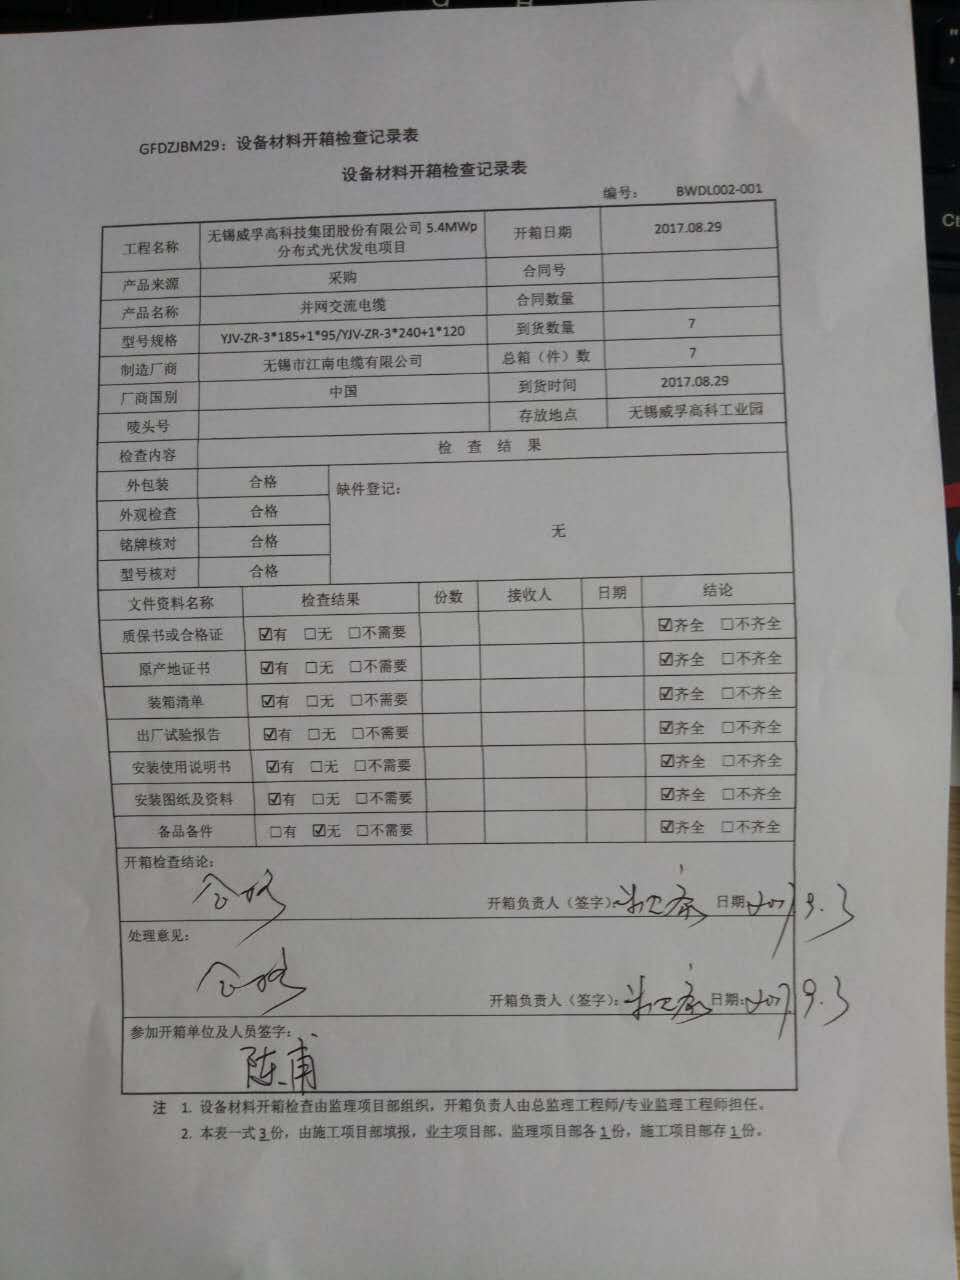 GFDZJBM29：设备材料开箱检查记录表
设备材料开箱检查记录表
编号： BWDL002-001
工程名称 无锡威孚高科技集团股份有限公司 5.4MWp 分布式光伏发电项目 开箱日期 2017.08.29
产品来源 采购 合同号
产品名称 并网交流电缆 合同数量
型号规格 YJV-ZR-3*185+1*95/YJV-ZR-3*240+1*120 到货数量 7
制造厂商 无锡市江南电缆有限公司 总箱（件）数 7
厂商国别 中国 到货时间 2017.08.29
唛头号 存放地点 无锡威孚高科工业园
检查内容 检 查 结 果
外包装 合格 缺件登记：
外观检查 合格 无
铭牌核对 合格
型号核对 合格
文件资料名称 检查结果 份数 接收人 日期 结论
质保书或合格证 ☑有 □无 □不需要 ☑齐全 □不齐全
原产地证书 ☑有 □无 □不需要 ☑齐全 □不齐全
装箱清单 ☑有 □无 □不需要 ☑齐全 □不齐全
出厂试验报告 ☑有 □无 □不需要 ☑齐全 □不齐全
安装使用说明书 ☑有 □无 □不需要 ☑齐全 □不齐全
安装图纸及资料 ☑有 □无 □不需要 ☑齐全 □不齐全
备品备件 □有 ☑无 □不需要 ☑齐全 □不齐全
开箱检查结论：
合格 开箱负责人（签字）： 日期：2017.9.3
处理意见：
合格 开箱负责人（签字）： 日期：2017.9.3
参加开箱单位及人员签字：
陈甫
注 1. 设备材料开箱检查由监理项目部组织，开箱负责人由总监理工程师/专业监理工程师担任。
2. 本表一式 3 份，由施工项目部填报，业主项目部、监理项目部各 1 份，施工项目部存 1 份。